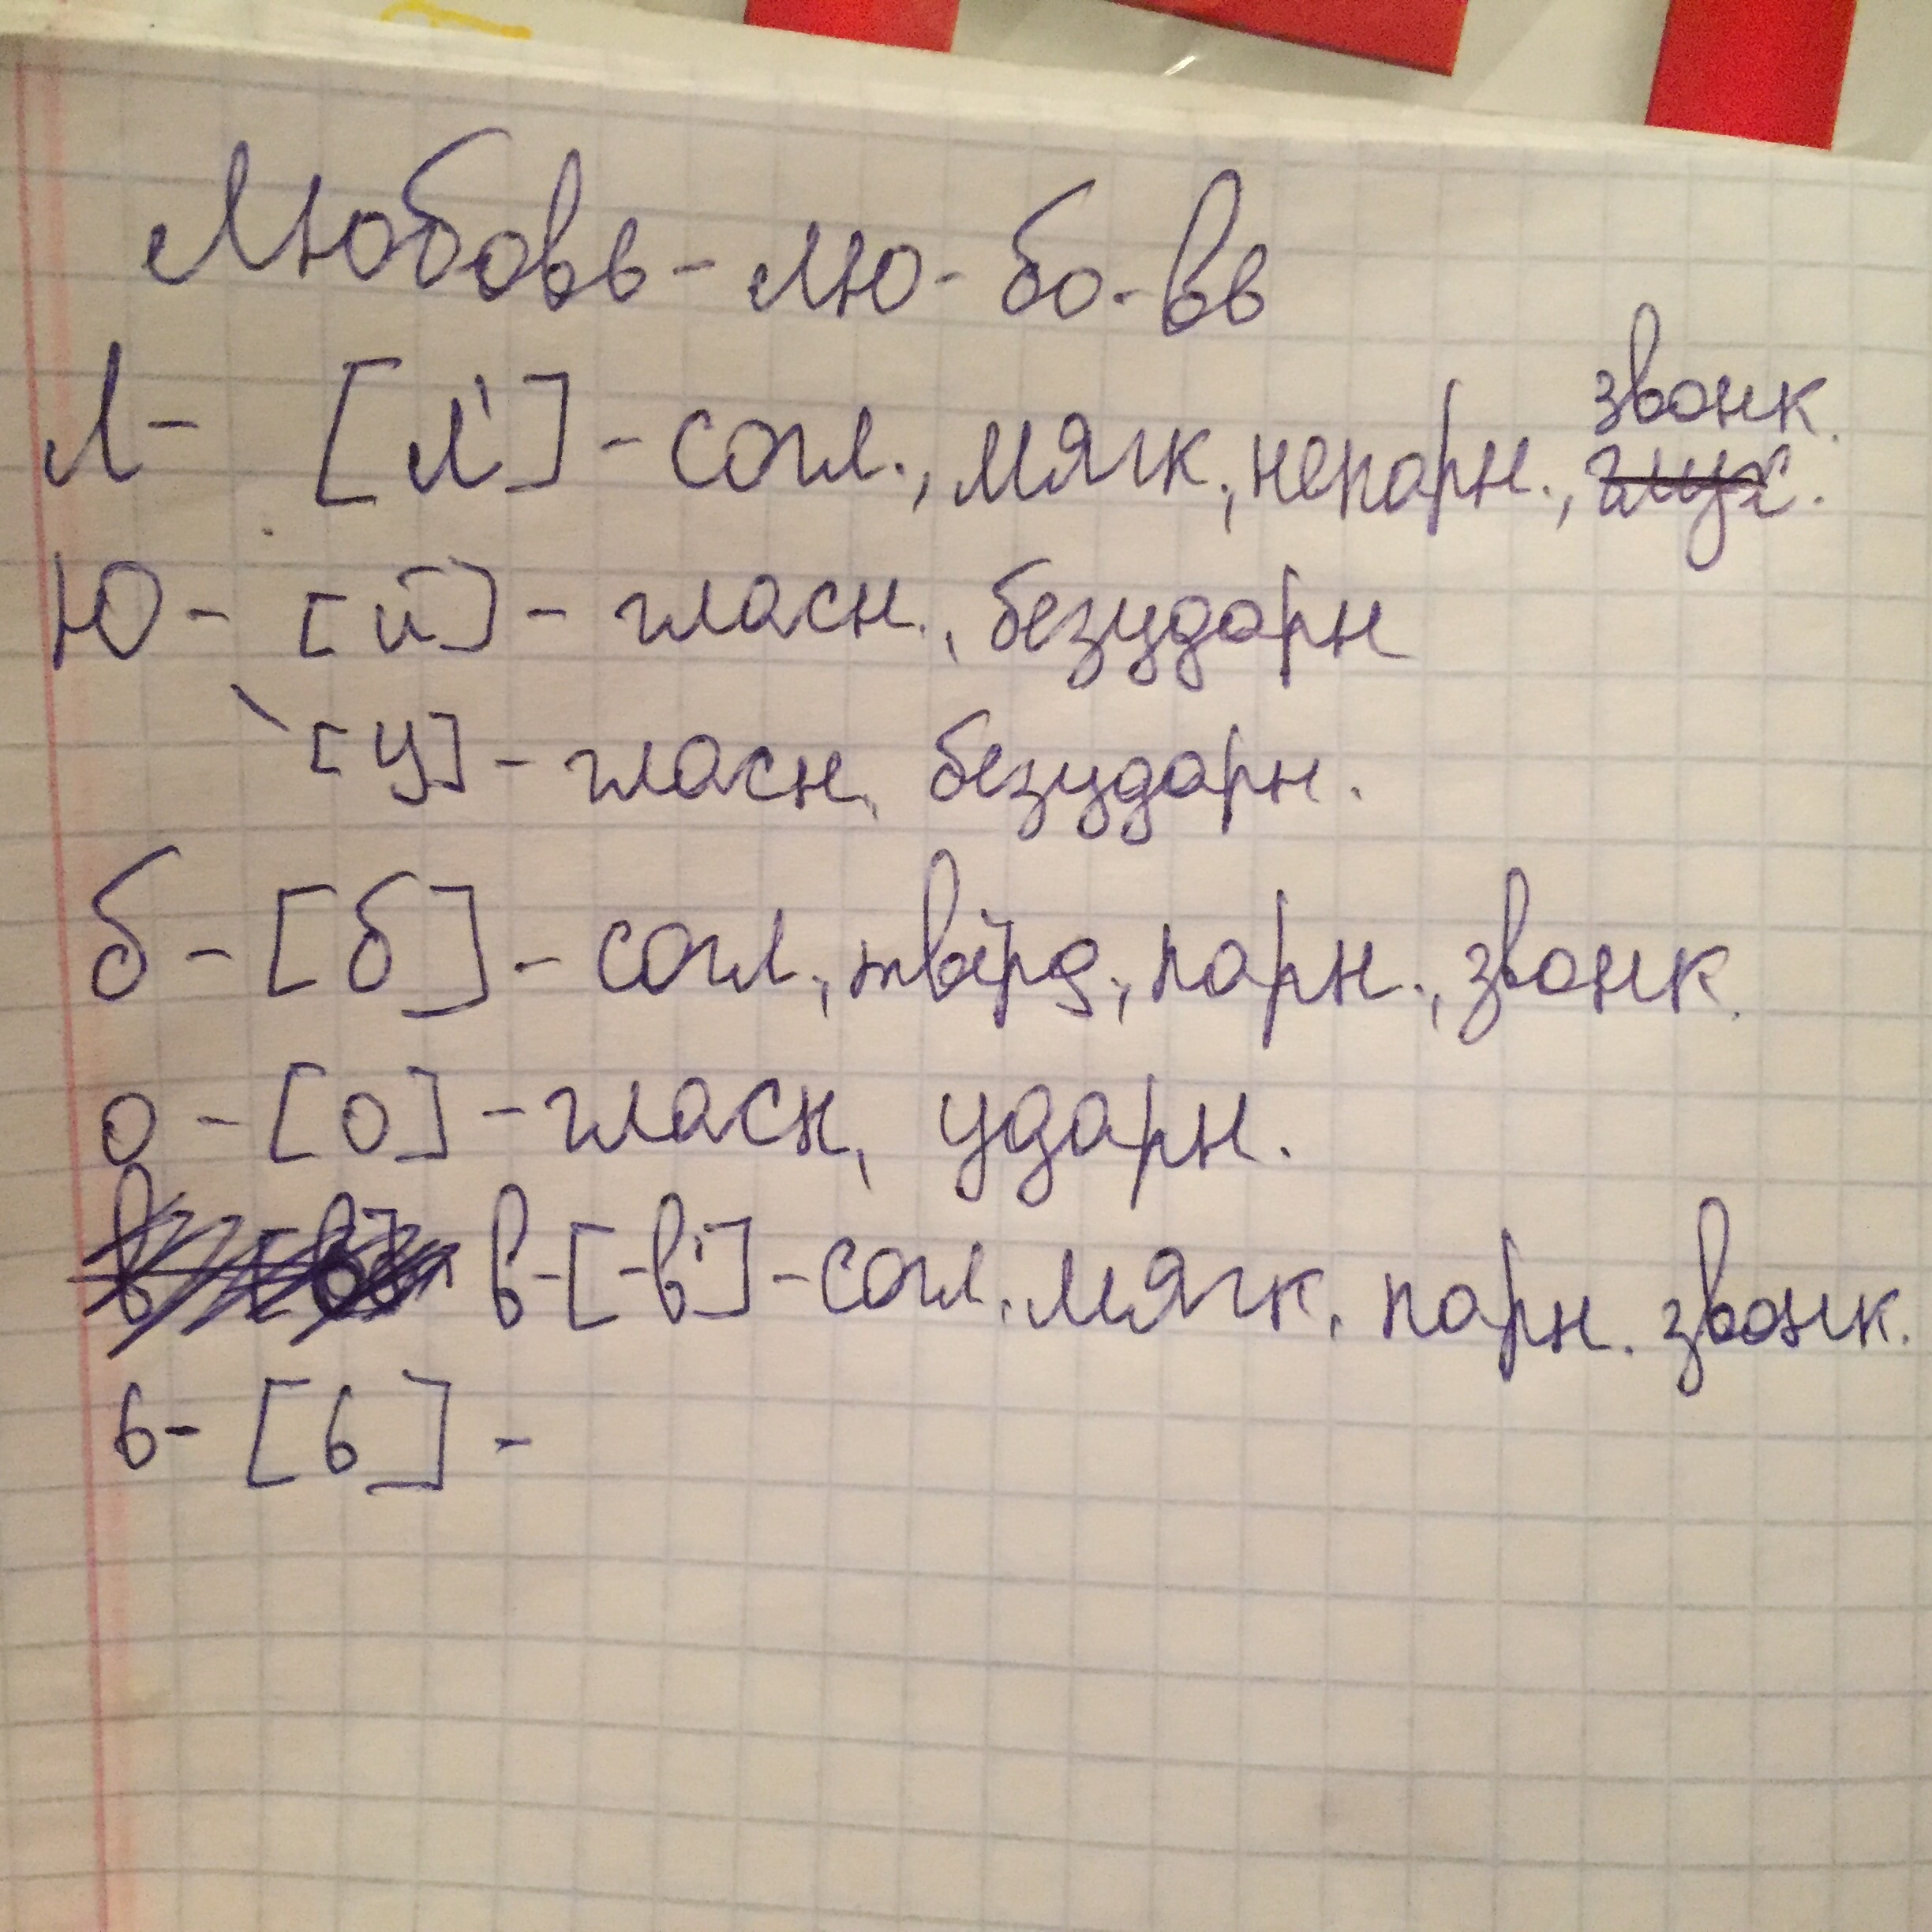 Любовь - лю-бо-вь
Л - [л'] - согл., мягк, непарн., звонк.
Ю - [й] - гласн., безударн
[у] - гласн, безударн.
б - [б] - согл, твёрд, парн., звонк.
о - [о] - гласн, ударн.
в - [-в'] - согл, мягк, парн. звонк.
ь - [ь] -